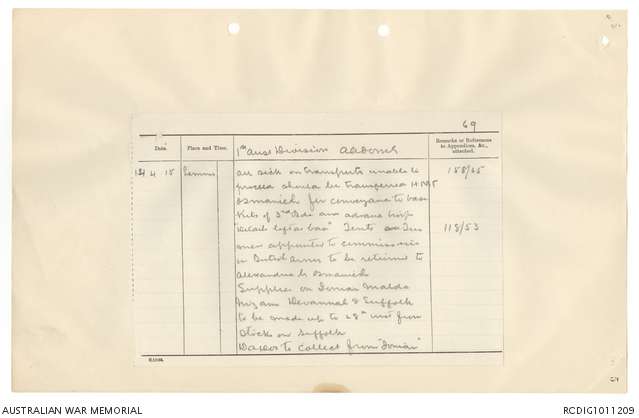 69
Date.
Place and Time.
1st Aust Division
Remarks or References to Appendices, &c., attached.
24 4 15
Lemnos
All sick on transports unable to
158/65
proceed should be transferred H.M.T.S
Osmanieh for conveyance to base
Kits of 3rd Bde and advance troops
Details left at base Tents
118/53
men appointed to commissions
in British Army to be returned to
Alexandria by Osmanieh
Supplies on Ionian Malda
Nizam Devanha & Suffolk
to be made up to 28th inst from
Stock on Suffolk
to collect from "Ionian"
AUSTRALIAN WAR MEMORIAL
RCDIG1011209